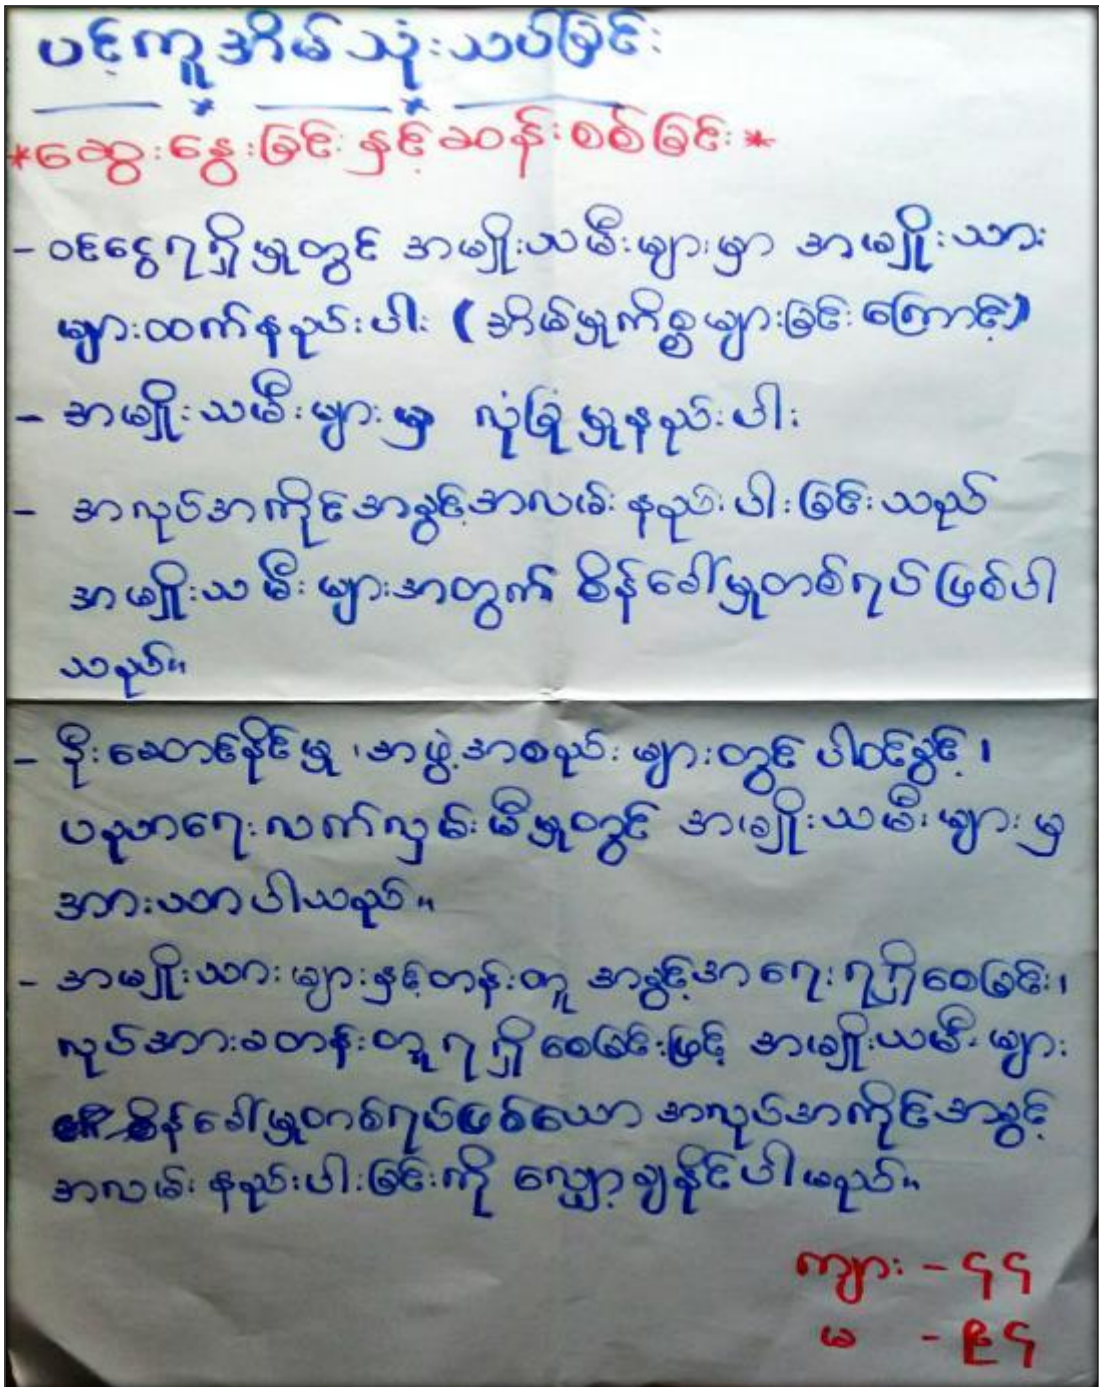 ပင့်ကူအိမ်သုံးသပ်ခြင်း
*ဆွေးနွေးခြင်းနှင့်ဆန်းစစ်ခြင်း*
- ဝင်ငွေရရှိမှုတွင် အမျိုးသမီးများမှာ အမျိုးသား
များထက်နည်းပါး (အိမ်မှုကိစ္စများခြင်းကြောင့်)
- အမျိုးသမီးများမှာ လုံခြုံမှုနည်းပါး
- အလုပ်အကိုင်အခွင့်အလမ်းနည်းပါးခြင်းသည်
အမျိုးသမီးများအတွက် စိန်ခေါ်မှုတစ်ရပ်ဖြစ်ပါ
သည်။
- ဦးဆောင်နိုင်မှု ၊အဖွဲ့အစည်းများတွင် ပါဝင်ခွင့် ၊
ပညာရေးလက်လှမ်းမီမှုတွင် အမျိုးသမီးများမှ
အားသာပါသည်။
- အမျိုးသားများနှင့်တန်းတူ အခွင့်အရေးရရှိစေခြင်း၊
လုပ်အားခတန်းတူရရှိစေခြင်းဖြင့် အမျိုးသမီးများ
စိန်ခေါ်မှုတစ်ရပ်ဖြစ်သော အလုပ်အကိုင်အခွင့်
အလမ်းနည်းပါးခြင်းကို လျှော့ချနိုင်ပါမည်။
ကျား - ၄၄
မ - ၉၄